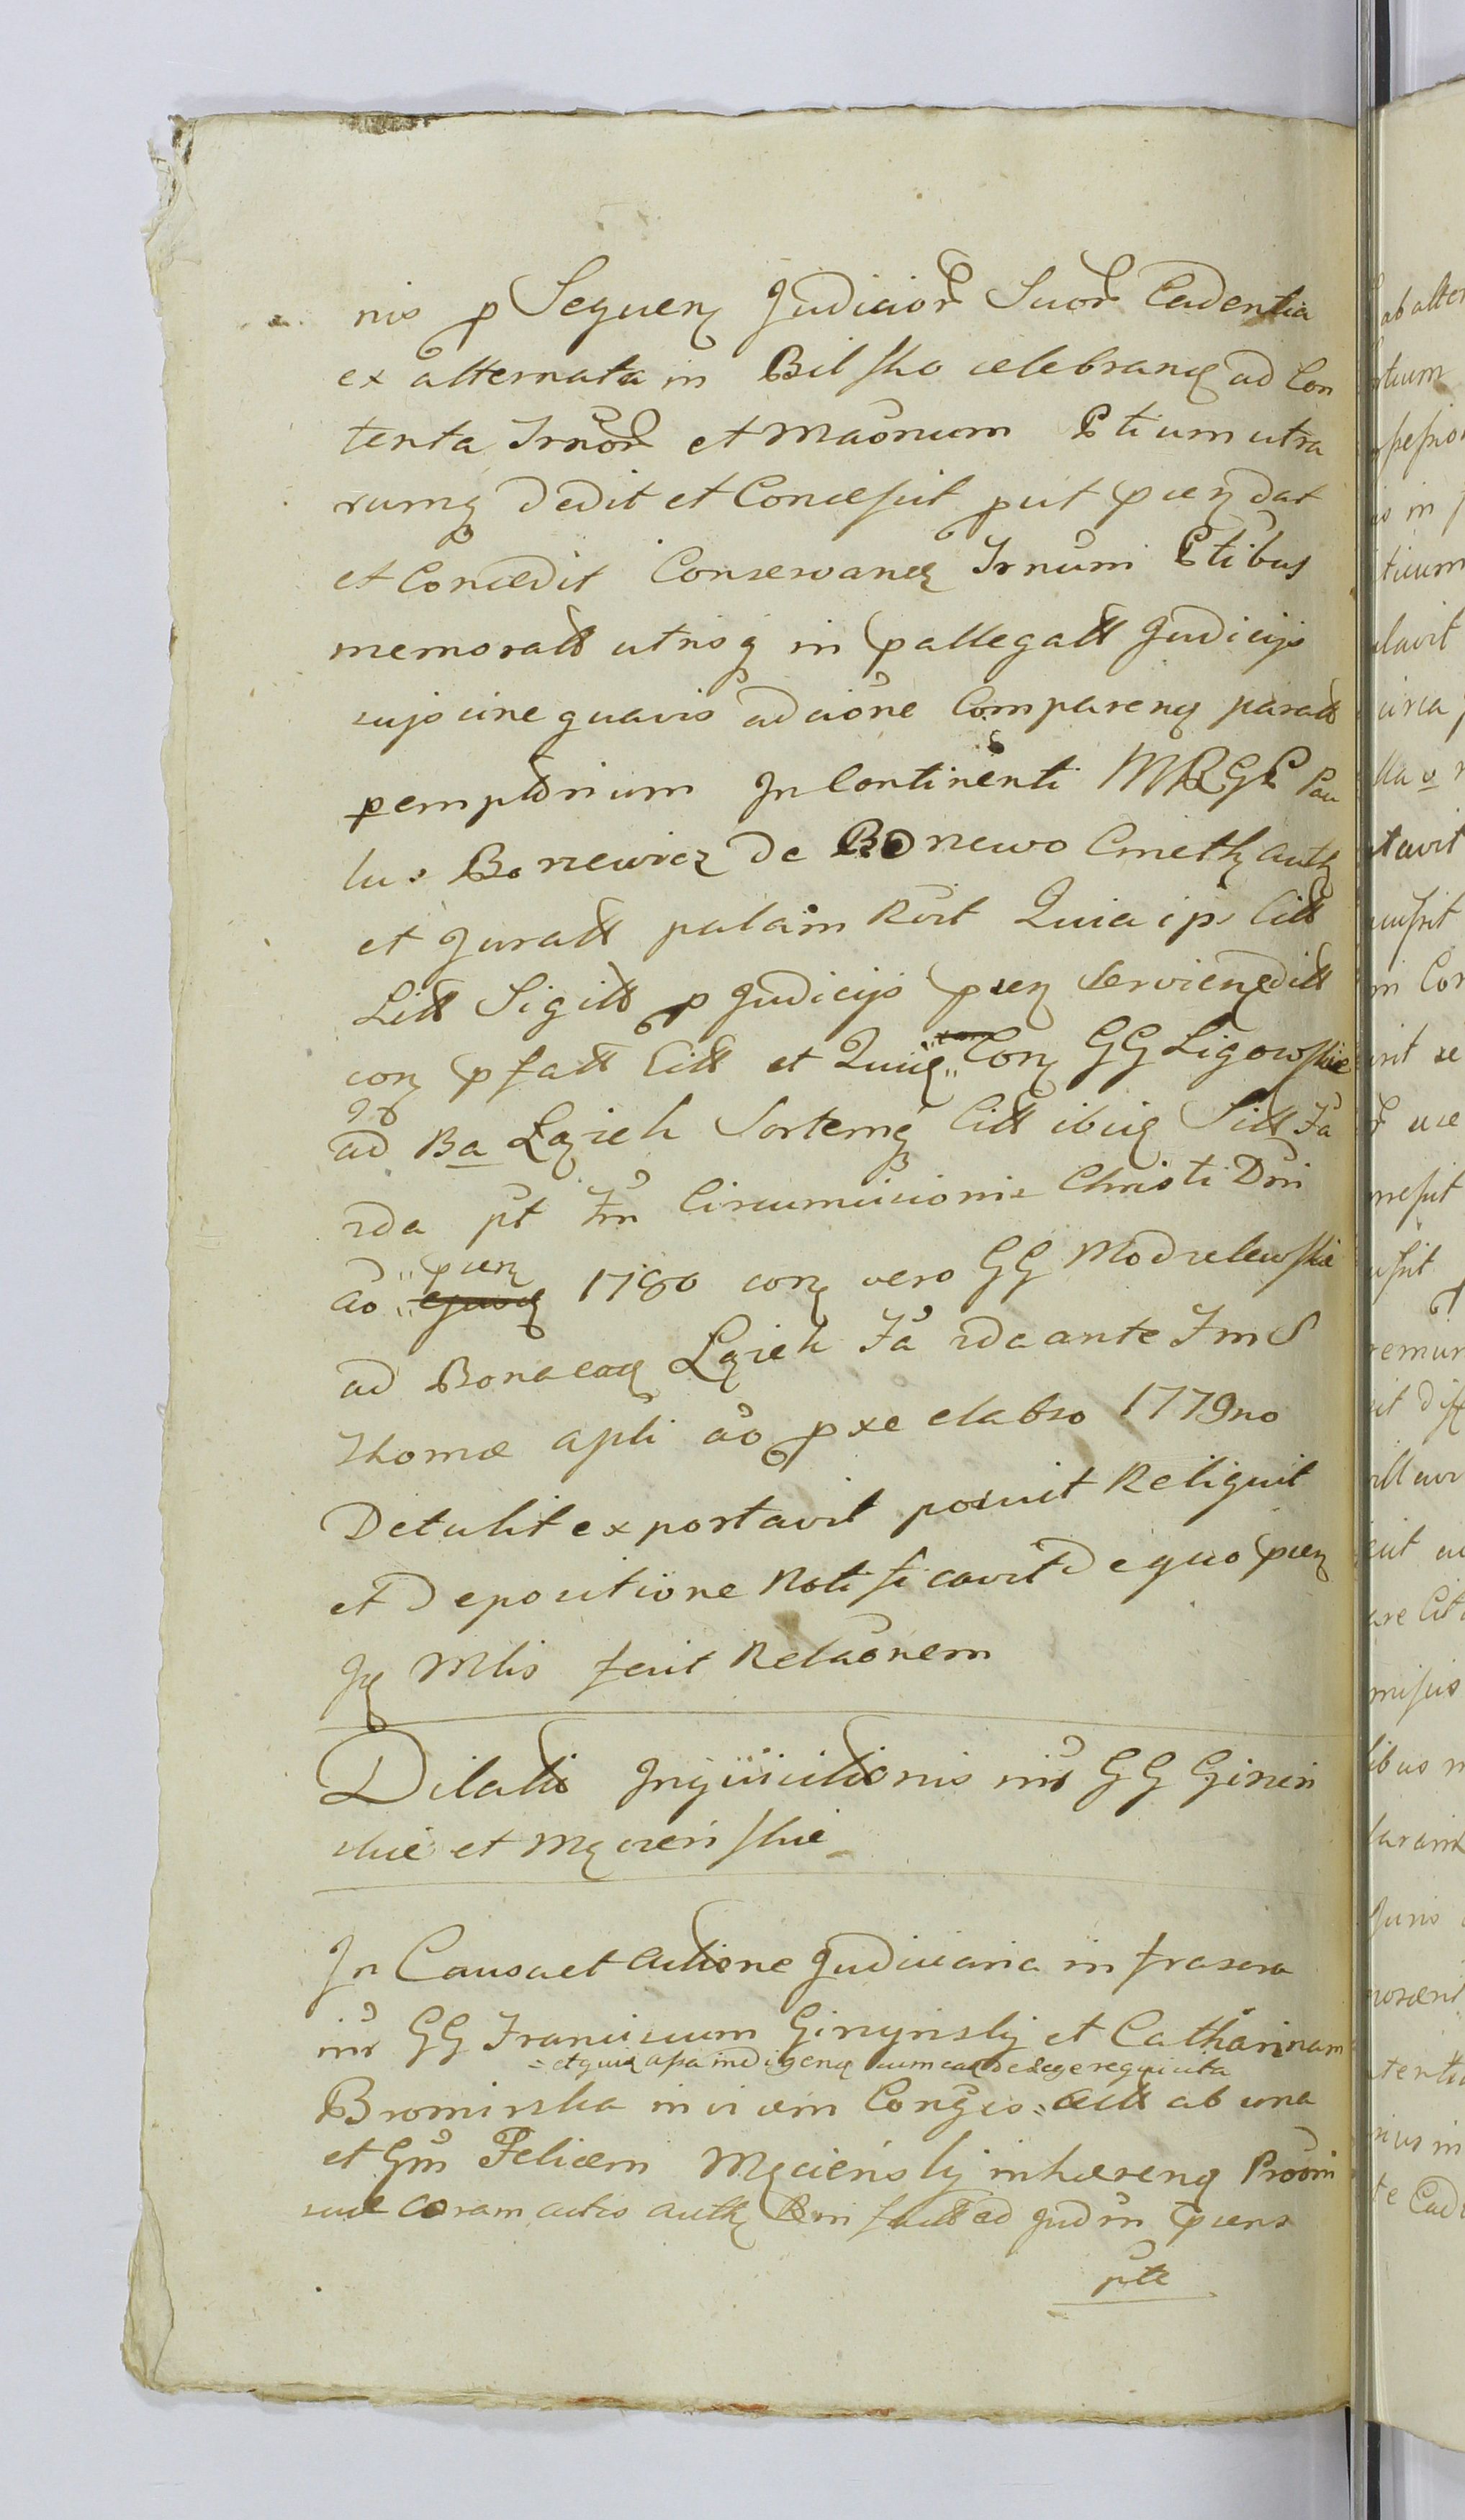 nis p Sequen Judicior Suor Cadentia
ex alternata in Bilsko celebran ad Con
tenta Trnor et Maonum Ptium utra
rumq dedit et Concessit put psen dat
et Concedit Conservan Trnum Ptibus
memoratt utrisq in pallegatt Judicijs
sujs sine quavis adcione Comparen paratt
pemptorium In Continenti MRGP Pau
lus Boniewicz de Boniewo Cmeth auth
et Juratt palam Rvit Quia ips Citt
Litt Sigitt p Judicijs psen servien editt
con pfatt Citt et Quitq Con GG Ligowskie
ad Ba Lqzieh Sortemq Citt ibiq Sitt Fa
2da pt Fm Circumcisionis Christi Dni
ao psen 1780 con vero GG Modzelewskie
ad Bona eaq Lqzieh Fa 2da ante Fm S
Thomæ Apli ao pxe elabso 1779no
Detulit exportavit posuit Reliquit
et Depositione Notificavit De quo psen
Jq Mlis fecit Relaonem
Dilatio Inquisitionis intr GG Ginin
skie et Mqczenskie
In Causa et actione Judiciaria infrascra
intr GG Franciscum Gininsky et Catharinam
= et quia assa indigenq cum ea de Lege requisita
Brominska invicem Congs = actt ab una
et Gm Felicem Mqczensky inhæren Proom
suæ coram actis auth Rm factt ad Judm psens
pte